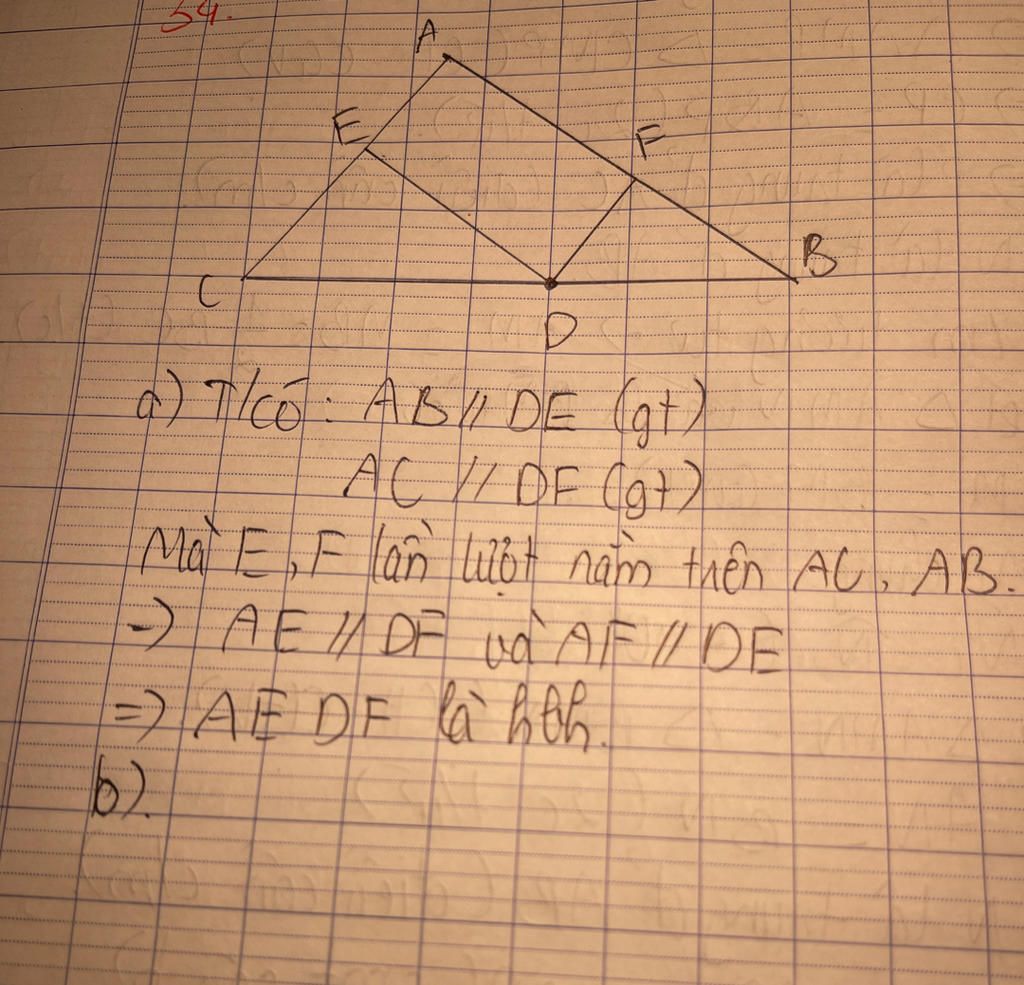 54.
A
E
F
B
C
D
a) T/có: AB // DE (gt)
AC // DF (gt)
Mà E, F lần lượt nằm trên AC, AB.
-) AE // DF và AF // DE
=) AEDF là hbh.
b).